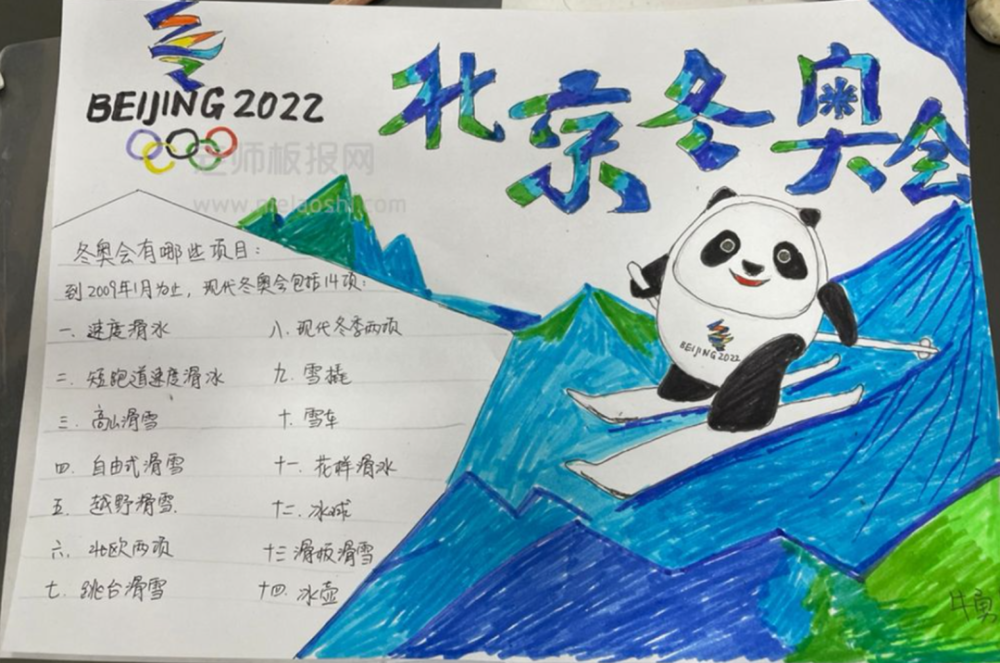 BEIJING 2022
北京冬奥会
老师板报网
冬奥会有哪些项目:
到2009年1月为止,现代冬奥会包括14项:
一.速度滑冰
八.现代冬季两项
二.短跑道速度滑冰
九.雪橇
三.高山滑雪
十.雪车
四.自由式滑雪
十一.花样滑冰
五.越野滑雪.
十二.冰球
六.北欧两项
十三.滑板滑雪
七.跳台滑雪
十四.冰壶
BEIJING 2022